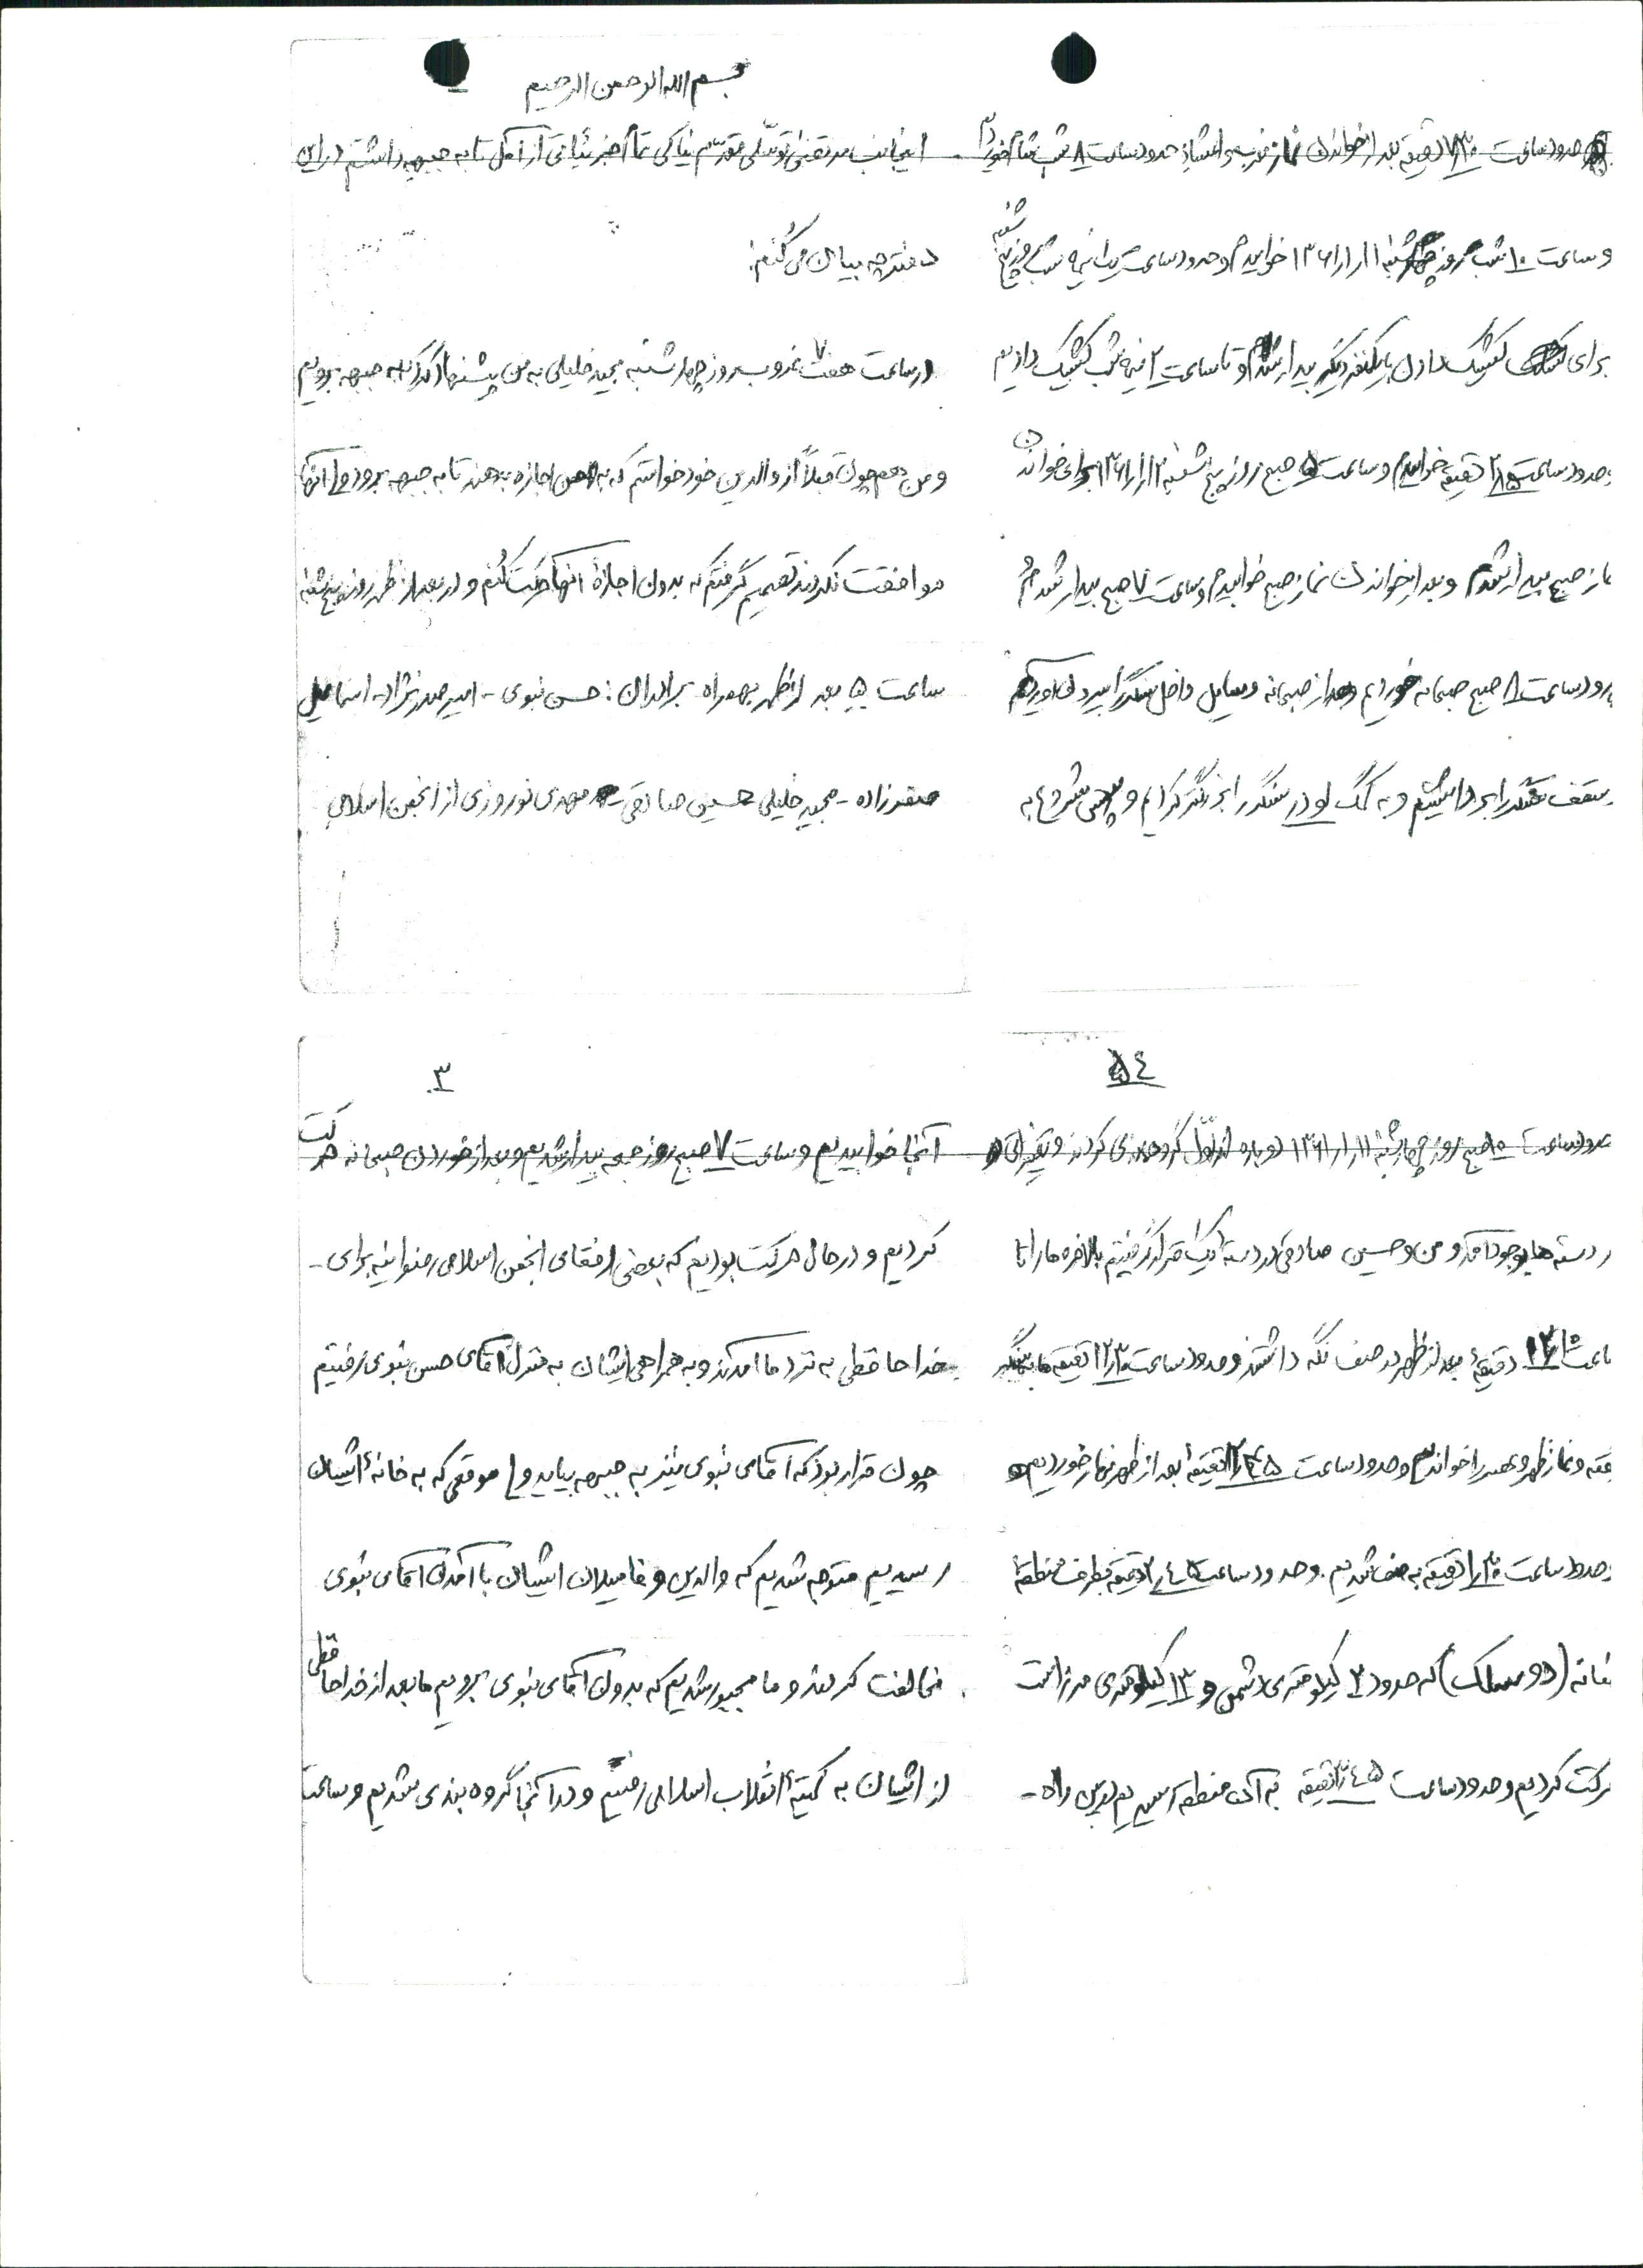 بسم الله الرحمن الرحیم
اینجانب مرتضی توسلی مقدم نیاکی تمام خبر هائی از آمل تا به جبهه داشتم در این
دفترچه بیان می کنم:
در ساعت هفت ۷ غروب روز چهارشنبه مجید خلیلی به من پیشنهاد کرد که به جبهه برویم
و من هم چون قبلاً از والدین خود خواستم که به من اجازه بدهند تا به جبهه بروم ولی آنها
موافقت نکردند تصمیم گرفتم که بدون اجازهٔ آنها حرکت کنم و در بعد از ظهر روز پنج شنبه
ساعت ۵ بعد از ظهر بهمراه برادران: حسن نبوی - امیر صدرنژاد - اسماعیل
صفرزاده - مجید خلیلی حسین صادقی - مهدی نوروزی از انجمن اسلامی
حدود ساعت ۷/۳۰ دقیقه بعد از خواندن نماز مغرب و عشاء حدود ساعت ۸ شب شام خوردیم
و ساعت ۱۰ شب روز چهارشنبه ۱۳۶۱/۱/۱۱ خوابیدم و حدود ساعت یک نیمه شب روز پنج شنبه
برای کشیک دادن با یکنفر دیگر بیدار شدم و تا ساعت ۲ نیمه شب کشیک دادیم
حدود ساعت ۲/۱۵ دقیقه خوابیدم و ساعت ۵ صبح روز پنج شنبه ۱۳۶۱/۱/۱۲ برای خواندن
ماز صبح بیدار شدم و بعد از خواندن نماز صبح خوابیدم و ساعت ۷ صبح بیدار شدم و
دود ساعت ۸ صبح صبحانه خوردیم و بعد از صبحانه وسایل داخل سنگر را بیرون آوردیم
سقف سنگر را برداشتیم و به کمک لودر سنگر را بزرگتر کردیم و سپس شروع به
۳
آنجا خوابیدیم و ساعت ۷ صبح روز جمعه بیدار شدیم و بعد از خوردن صبحانه حرکت
کردیم و در حال حرکت بودیم که بعضی از رفقای انجمن اسلامی رضوانیه برای -
خداحافظی به نزد ما آمدند و به همراهی ایشان به منزل آقای حسن نبوی رفتیم
چون قرار بود که آقای نبوی نیز به جبهه بیاید ولی موقعی که به خانهٔ ایشان
رسیدیم متوجه شدیم که والدین و فامیلان ایشان با آمدن آقای نبوی
مخالفت کردند و ما مجبور شدیم که بدون آقای نبوی برویم ما بعد از خداحافظی
از ایشان به کمیتهٔ انقلاب اسلامی رفتیم و در آنجا گروه بندی شدیم و ساعت
۵۴
حدود ساعت ۱۰ صبح روز چهارشنبه ۱۳۶۱/۱/۱۱ دوباره از اول گروهبندی کردند و تغییراتی
در دسته ها بوجود آمد و من و حسین صادقی در دسته یک قرار گرفتیم بالاخره ما را تا
ساعت ۱۲/۱۵ دقیقهٔ بعد از ظهر در صف نگه داشتند و حدود ساعت ۱۲/۳۰ دقیقه ما به سنگر
فته و نماز ظهر و عصر را خواندیم و حدود ساعت دقیقهٔ بعد از ظهر نهار خوردیم و
حدود ساعت دقیقه به صف شدیم. و حدود ساعت دقیقه بطرف منطقهٔ
(دوسلک) که حدود ۲ کیلومتری دشمن و ۱۳ کیلومتری مرز است
حرکت کردیم و حدود ساعت دقیقه به آن منطقه رسیدیم در بین راه -